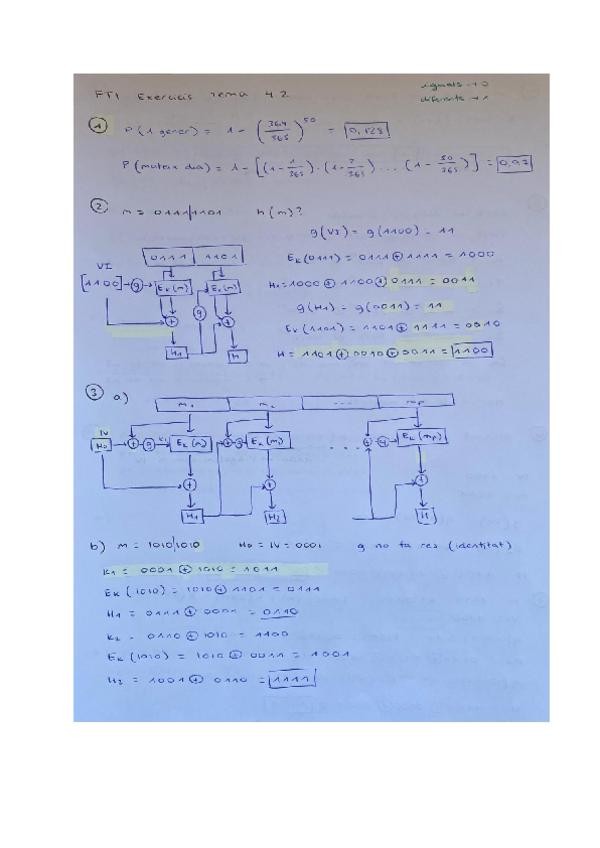 FTI Exercicis Tema 4.2
iguals → 0
diferents → 1
① P(1 gener) = 1 - (364/365)^50 = 0,128
P(mateix dia) = 1 - [(1 - 1/365) · (1 - 2/365) ... (1 - 50/365)] = 0,97
② m = 0111|1101 h(m)?
g(VI) = g(1100) = 11
0111 1101
VI
[1100] g Ek(m) g Ek(m)
H1 H
Ek(0111) = 0111 ⊕ 1111 = 1000
H1 = 1000 ⊕ 1100 ⊕ 0111 = 0011
g(H1) = g(0011) = 11
Ek(1101) = 1101 ⊕ 1111 = 0010
H = 1101 ⊕ 0010 ⊕ 0011 = 1100
③ a)
m1 m2 .... mp
IV
H0 ⊕ g K1 Ek(m) ⊕ g Ek(m) ... ⊕ g Ek(mp)
H1 H2 H
b) m = 1010|1010 H0 = IV = 0001 g no fa res (identitat)
K1 = 0001 ⊕ 1010 = 1011
Ek(1010) = 1010 ⊕ 1101 = 0111
H1 = 0111 ⊕ 0001 = 0110
K2 = 0110 ⊕ 1010 = 1100
Ek(1010) = 1010 ⊕ 0011 = 1001
H2 = 1001 ⊕ 0110 = 1111